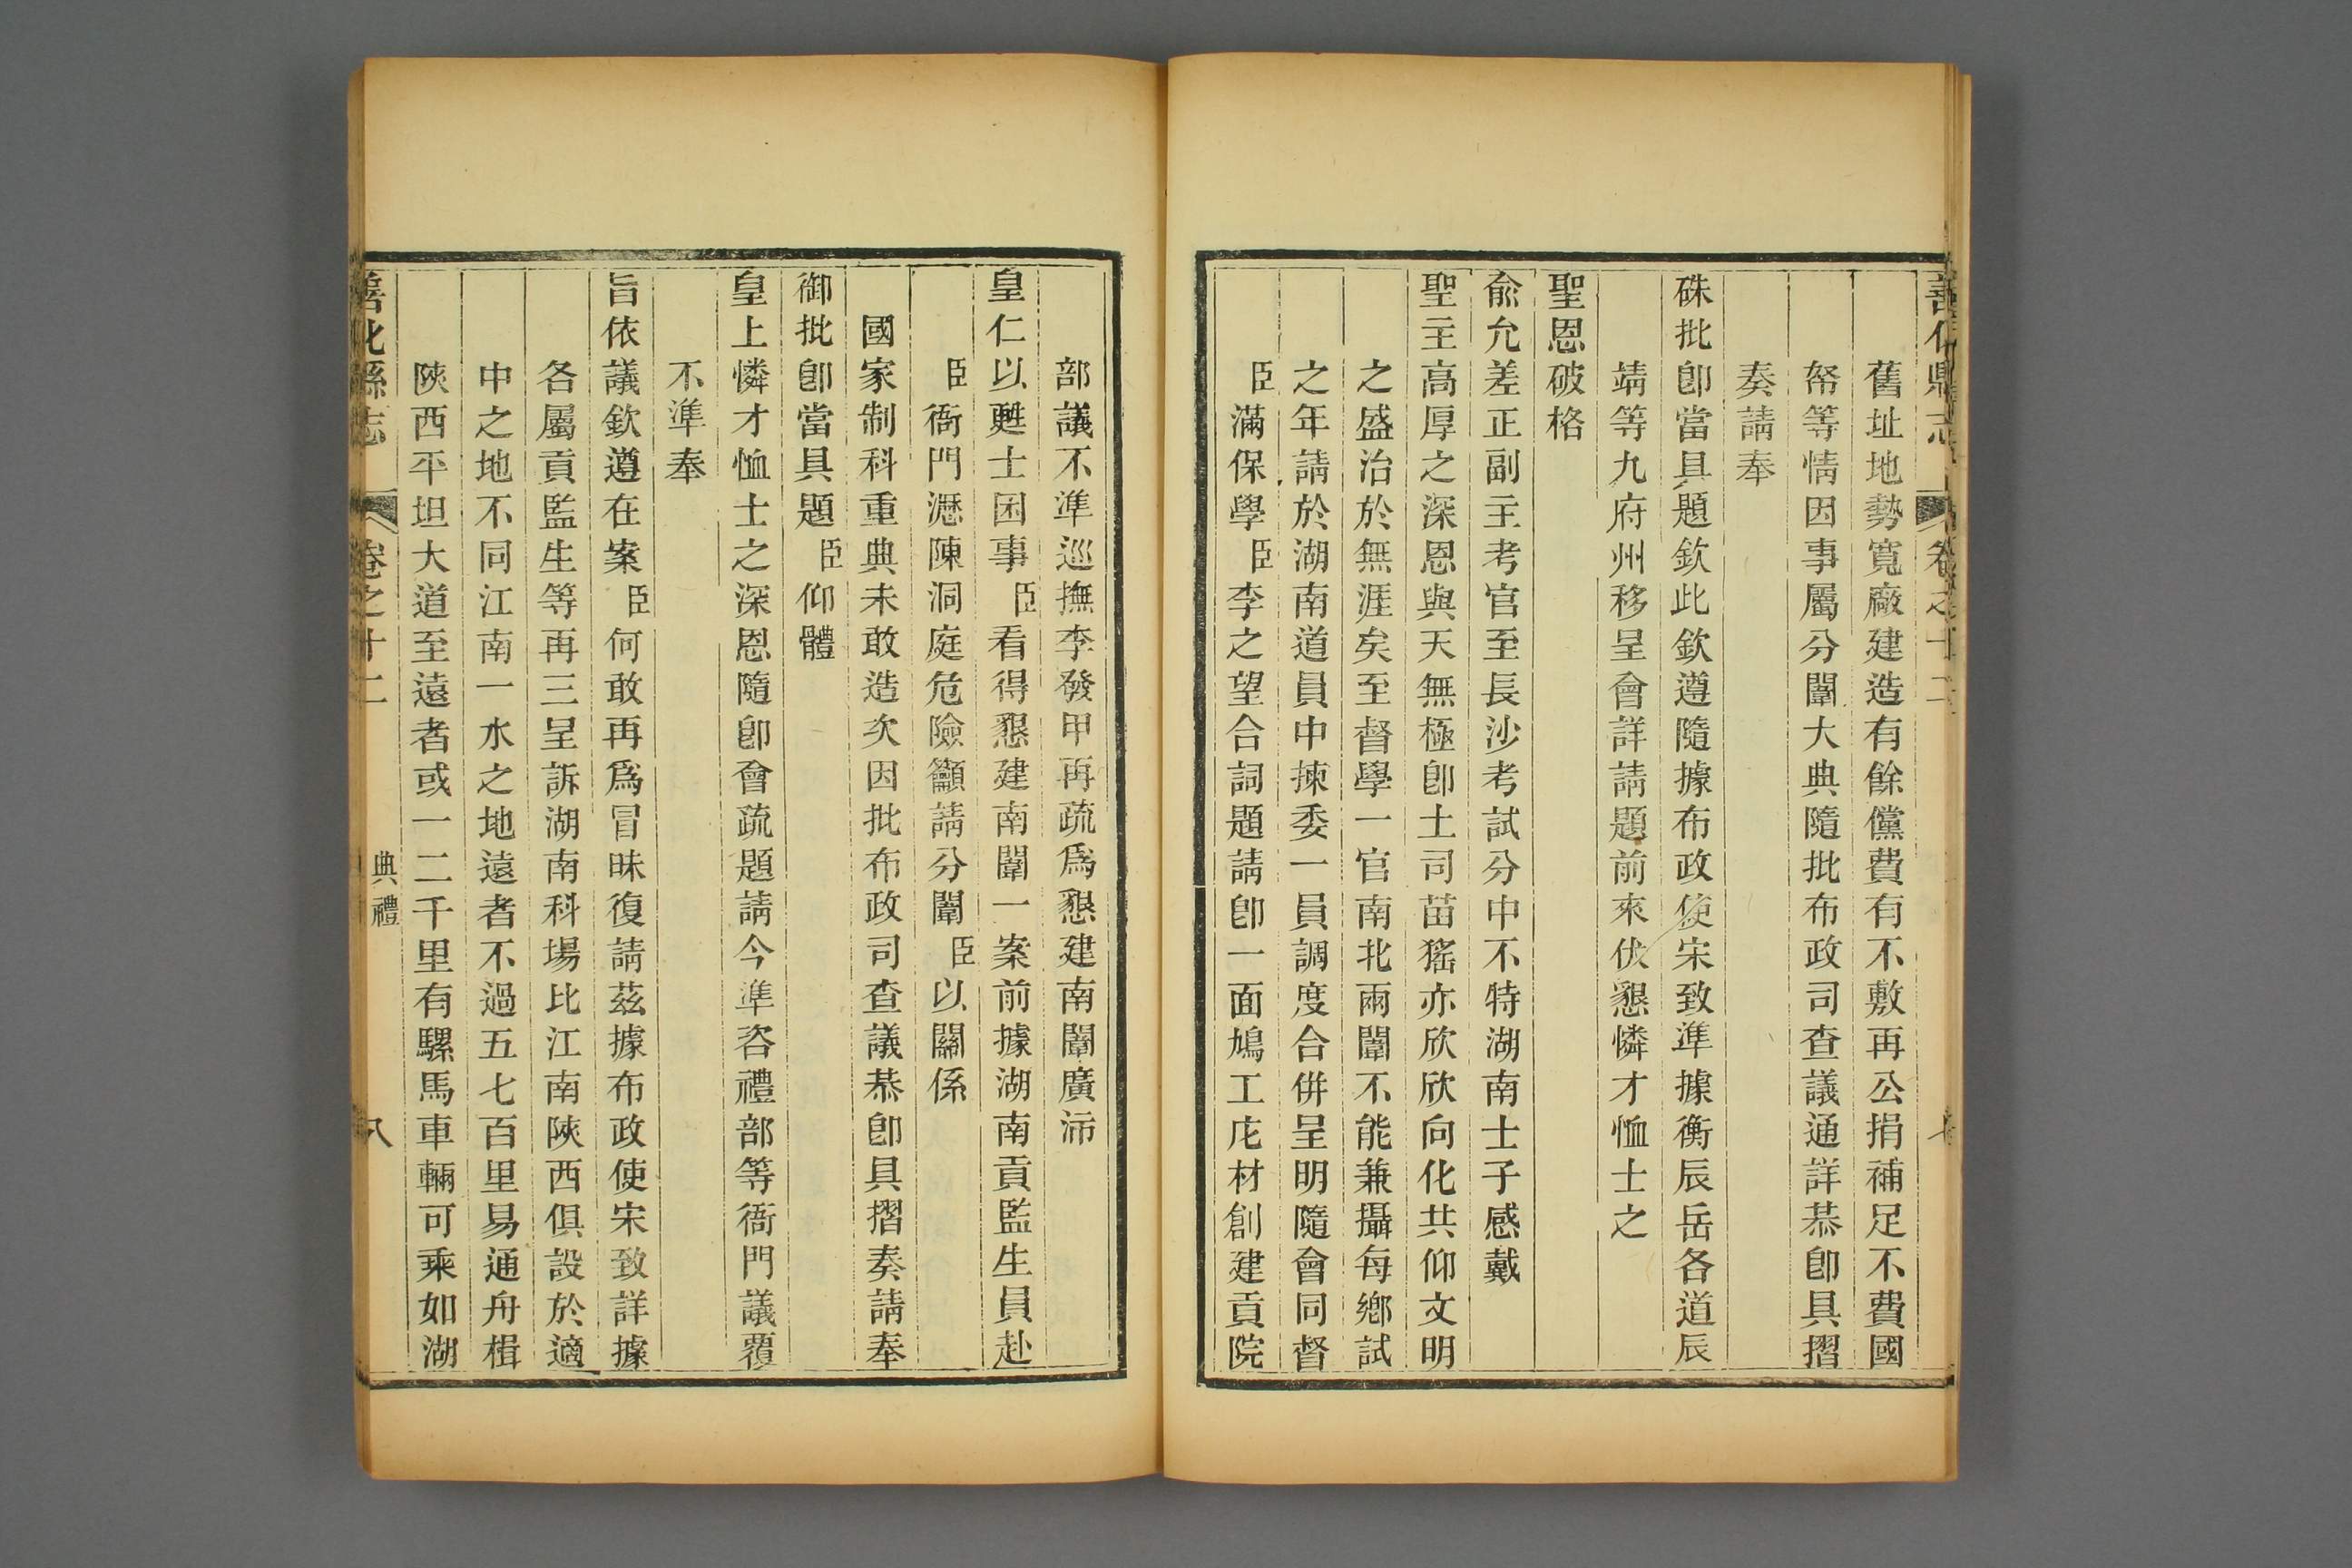 善化縣志 卷之十二
舊址地勢寬廠建造有餘儻費有不敷再公捐補足不費國
帑等情因事屬分闈大典隨批布政司查議通詳恭卽具摺
奏請奉
硃批卽當具題欽此欽遵隨據布政使宋致準據衡辰岳各道辰
靖等九府州移呈會詳請題前來伏懇憐才恤士之
聖恩破格
兪允差正副主考官至長沙考試分中不特湖南士子感戴
聖主高厚之深恩與天無極卽土司苗猺亦欣欣向化共仰文明
之盛治於無涯矣至督學一官南北兩闈不能兼攝每鄉試
之年請於湖南道員中揀委一員調度合併呈明隨會同督
臣滿保學臣李之望合詞題請卽一面鳩工庀材創建貢院
部議不準巡撫李發甲再疏爲懇建南闈廣沛
皇仁以甦士困事臣看得懇建南闈一案前據湖南貢監生員赴
臣衙門瀝陳洞庭危險籲請分闈臣以關係
國家制科重典未敢造次因批布政司查議恭卽具摺奏請奉
御批卽當具題臣仰體
皇上憐才恤士之深恩隨卽會疏題請今準咨禮部等衙門議覆
不準奉
旨依議欽遵在案臣何敢再爲冒昧復請茲據布政使宋致詳據
各屬貢監生等再三呈訴湖南科場比江南陝西俱設於適
中之地不同江南一水之地遠者不過五七百里易通舟楫
陝西平坦大道至遠者或一二千里有騾馬車輛可乘如湖
善化縣志 卷之十二 典禮 八